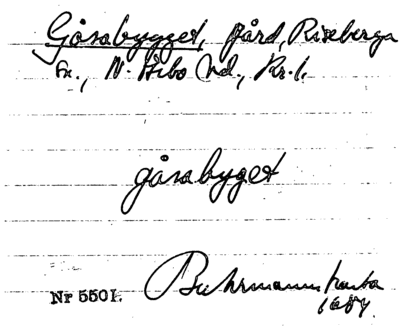 Gåsabygget, gård, Riseberga
sn., N. Åsbo hd., Kr. l.
gåsabyget
Buhrmanns karta
1684.
Nr 5501.